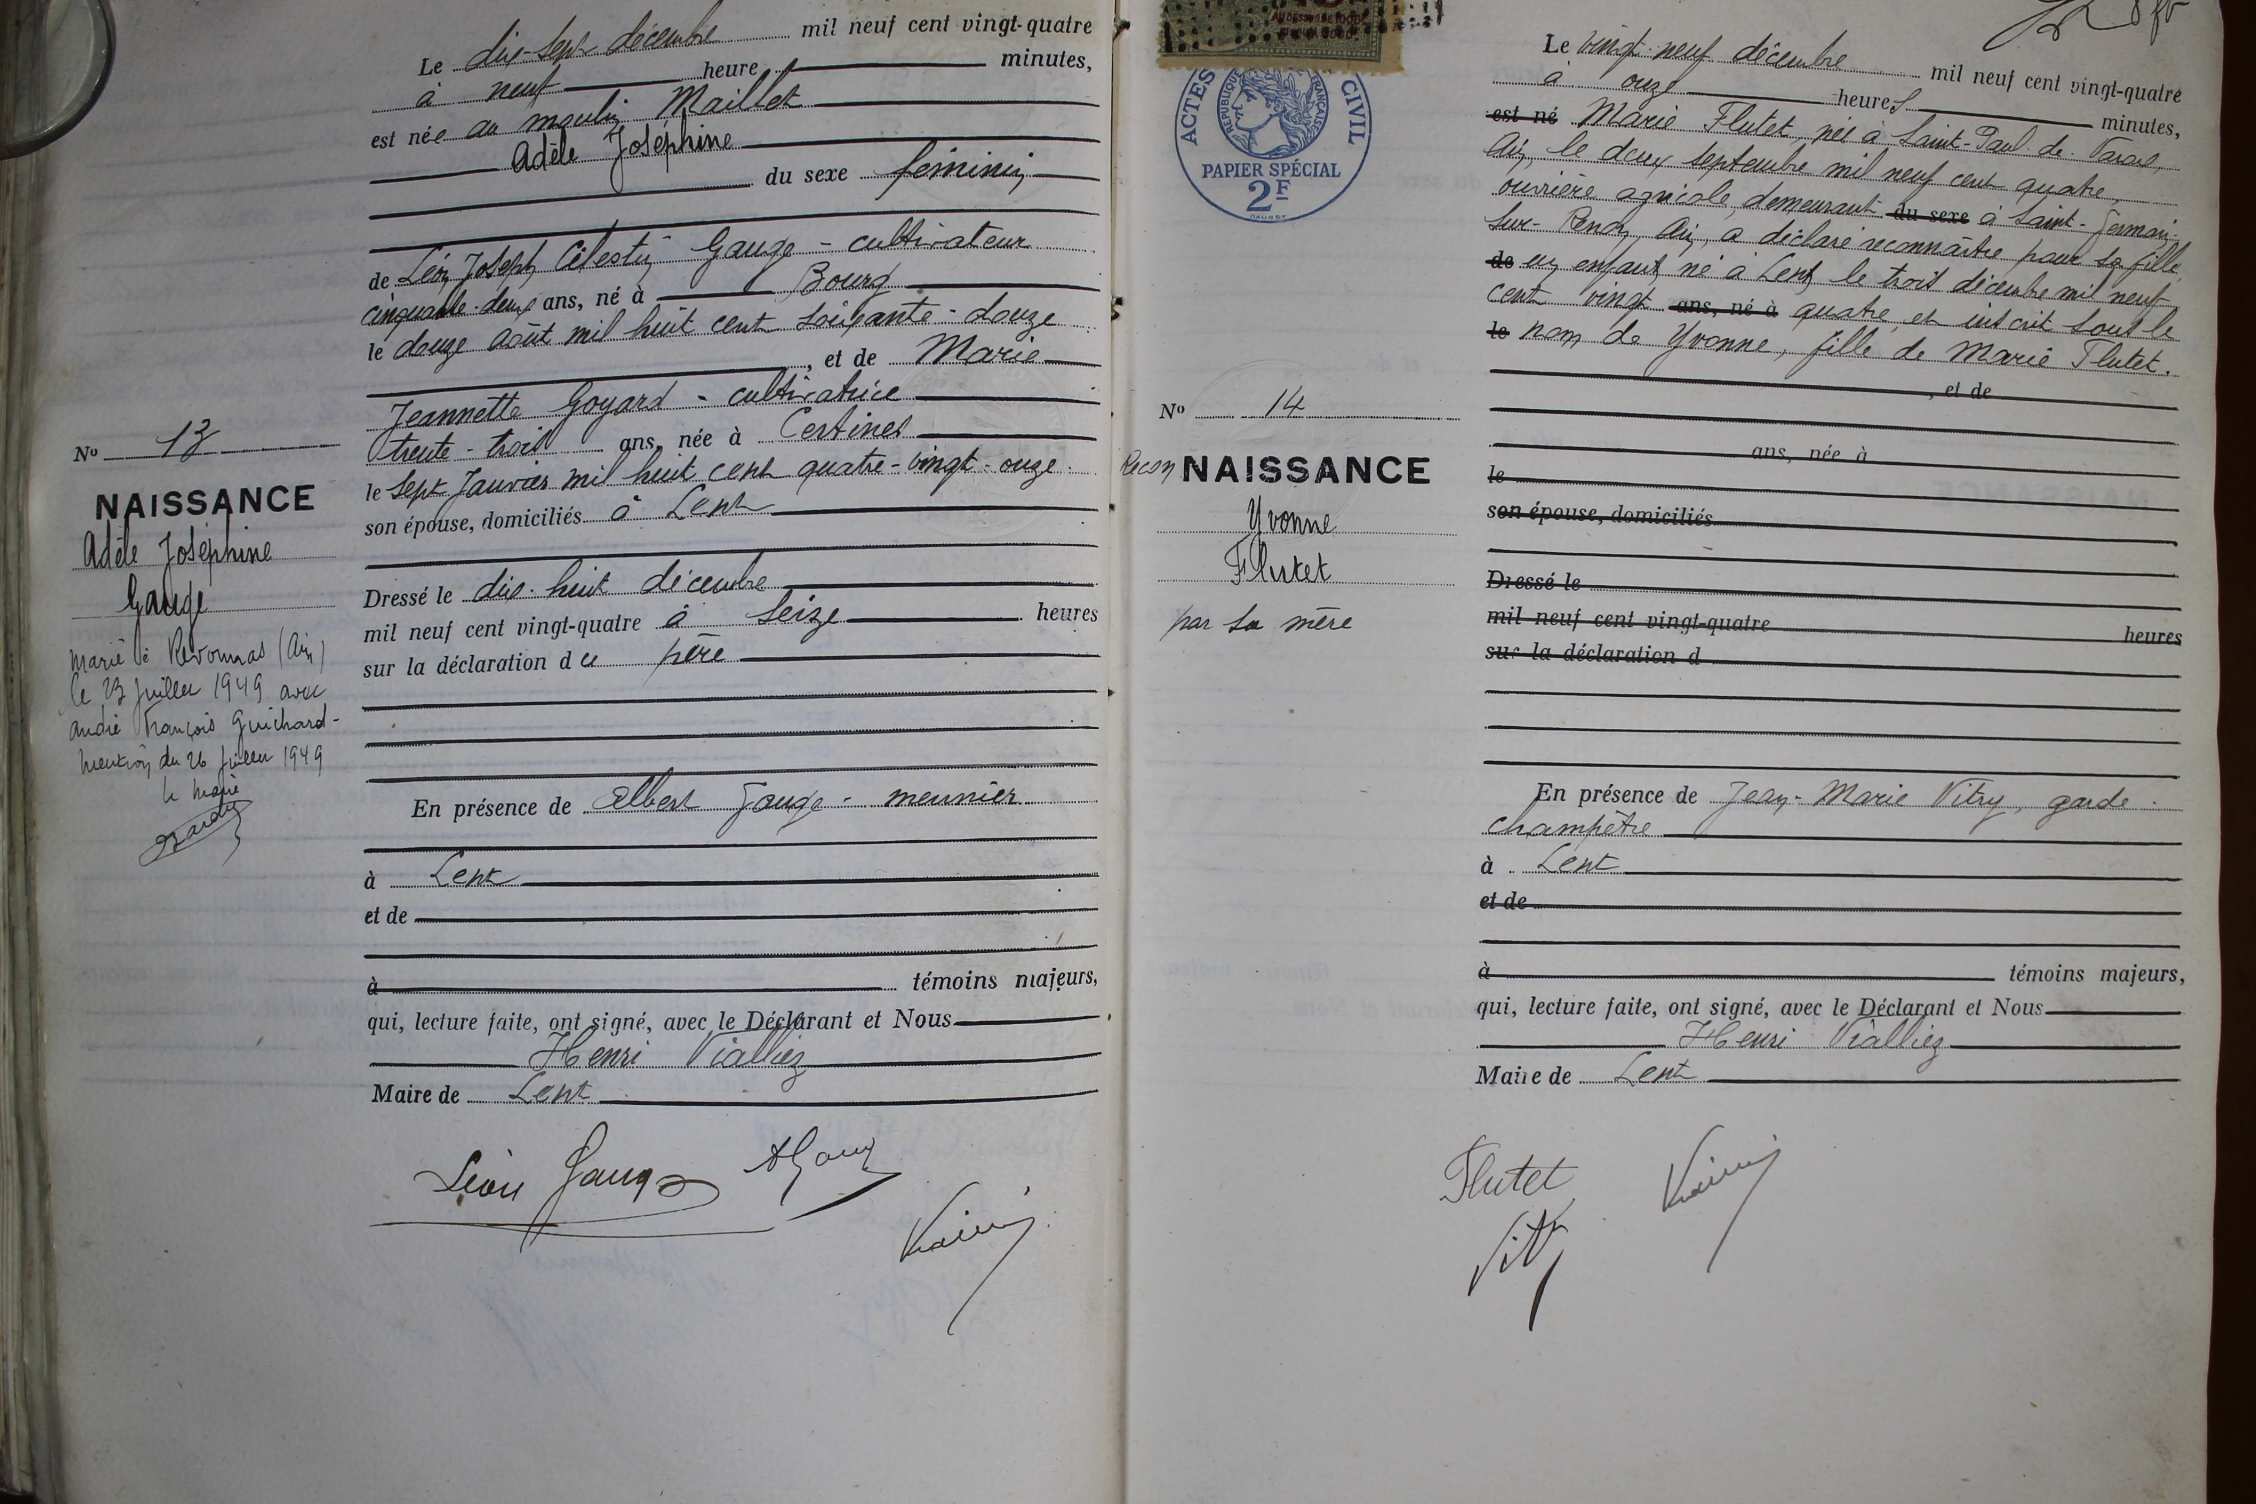 Le dix-sept décembre mil neuf cent vingt-quatre
à neuf heure minutes,
est née au moulin Maillet
Adèle Joséphine
du sexe féminin
de Léon Joseph Célestin Gauge - cultivateur
cinquante-deux ans, né à Bourg
le douze août mil huit cent soixante-douze
, et de Marie
Jeannette Goyard - cultivatrice
trente-trois ans, née à Certines
le sept Janvier mil huit cent quatre-vingt-onze
son épouse, domiciliés à Lent
Dressé le dix-huit décembre
mil neuf cent vingt-quatre à seize heures
sur la déclaration du père
En présence de Albert Gauge - meunier
à Lent
et de
à témoins majeurs,
qui, lecture faite, ont signé, avec le Déclarant et Nous
Henri Vialliez
Maire de Lent
Léon Gauge
AGauge
No 13
NAISSANCE
Adèle Joséphine
Gauge
Marié à Revonnas (Ain)
le 23 Juillet 1949 avec
André François Guichard-
Mention du 26 Juillet 1949
le Maire
ACTES CIVIL
RÉPUBLIQUE FRANÇAISE
PAPIER SPÉCIAL
2F
No 14
Recon NAISSANCE
Yvonne
Flutet
par sa mère
Le vingt-neuf décembre mil neuf cent vingt-quatre
à onze heures minutes,
est né Marie Flutet, née à Saint-Paul-de-Varax,
Ain, le deux septembre mil neuf cent quatre,
ouvrière agricole, demeurant du sexe à Saint-Germain-
sur-Renon, Ain, a déclaré reconnaître pour sa fille
de un enfant, né à Lent, le trois décembre mil neuf
cent vingt ans, né à quatre, et inscrit sous le
le nom de Yvonne, fille de Marie Flutet.
, et de
ans, née à
le
son épouse, domiciliés
Dressé le
mil neuf cent vingt-quatre heures
sur la déclaration d
En présence de Jean-Marie Vitry, garde-
champêtre
à Lent
et de
à témoins majeurs,
qui, lecture faite, ont signé, avec le Déclarant et Nous
Henri Vialliez
Maire de Lent
Flutet